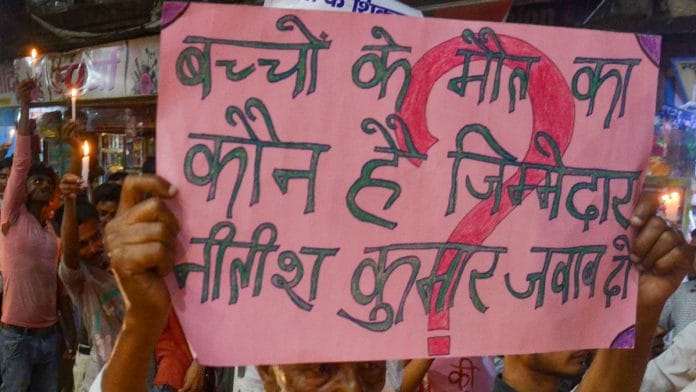 के शिका
बच्चों के मौत का
कौन है जिम्मेदार
नीतीश कुमार जवाब दो
?
की